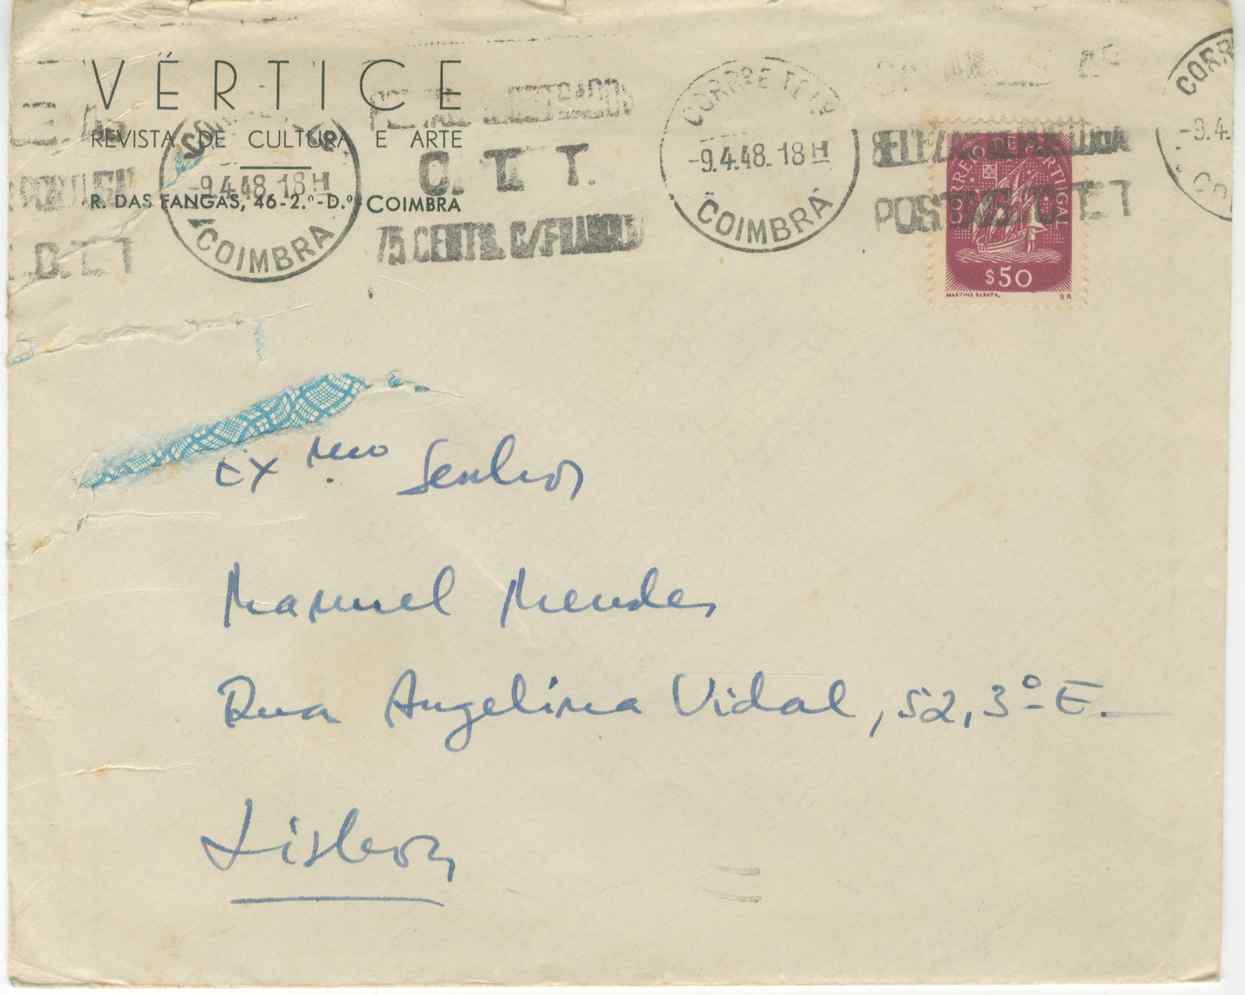 VÉRTICE
REVISTA DE CULTURA E ARTE
R. DAS FANGAS, 46-2.º-D.º COIMBRA
-9.4.48.18H
COIMBRA
C. T. T.
75 CENTS. C/FRANQUIA
-9.4.48.18H
COIMBRA
POSTAIS C.T.T
CORREIO DE PORTUGAL
$50
MARTINS BARATA.
Exmo Senhor
Manuel Mendes
Rua Angelina Vidal, 52, 3º-E.
Lisboa